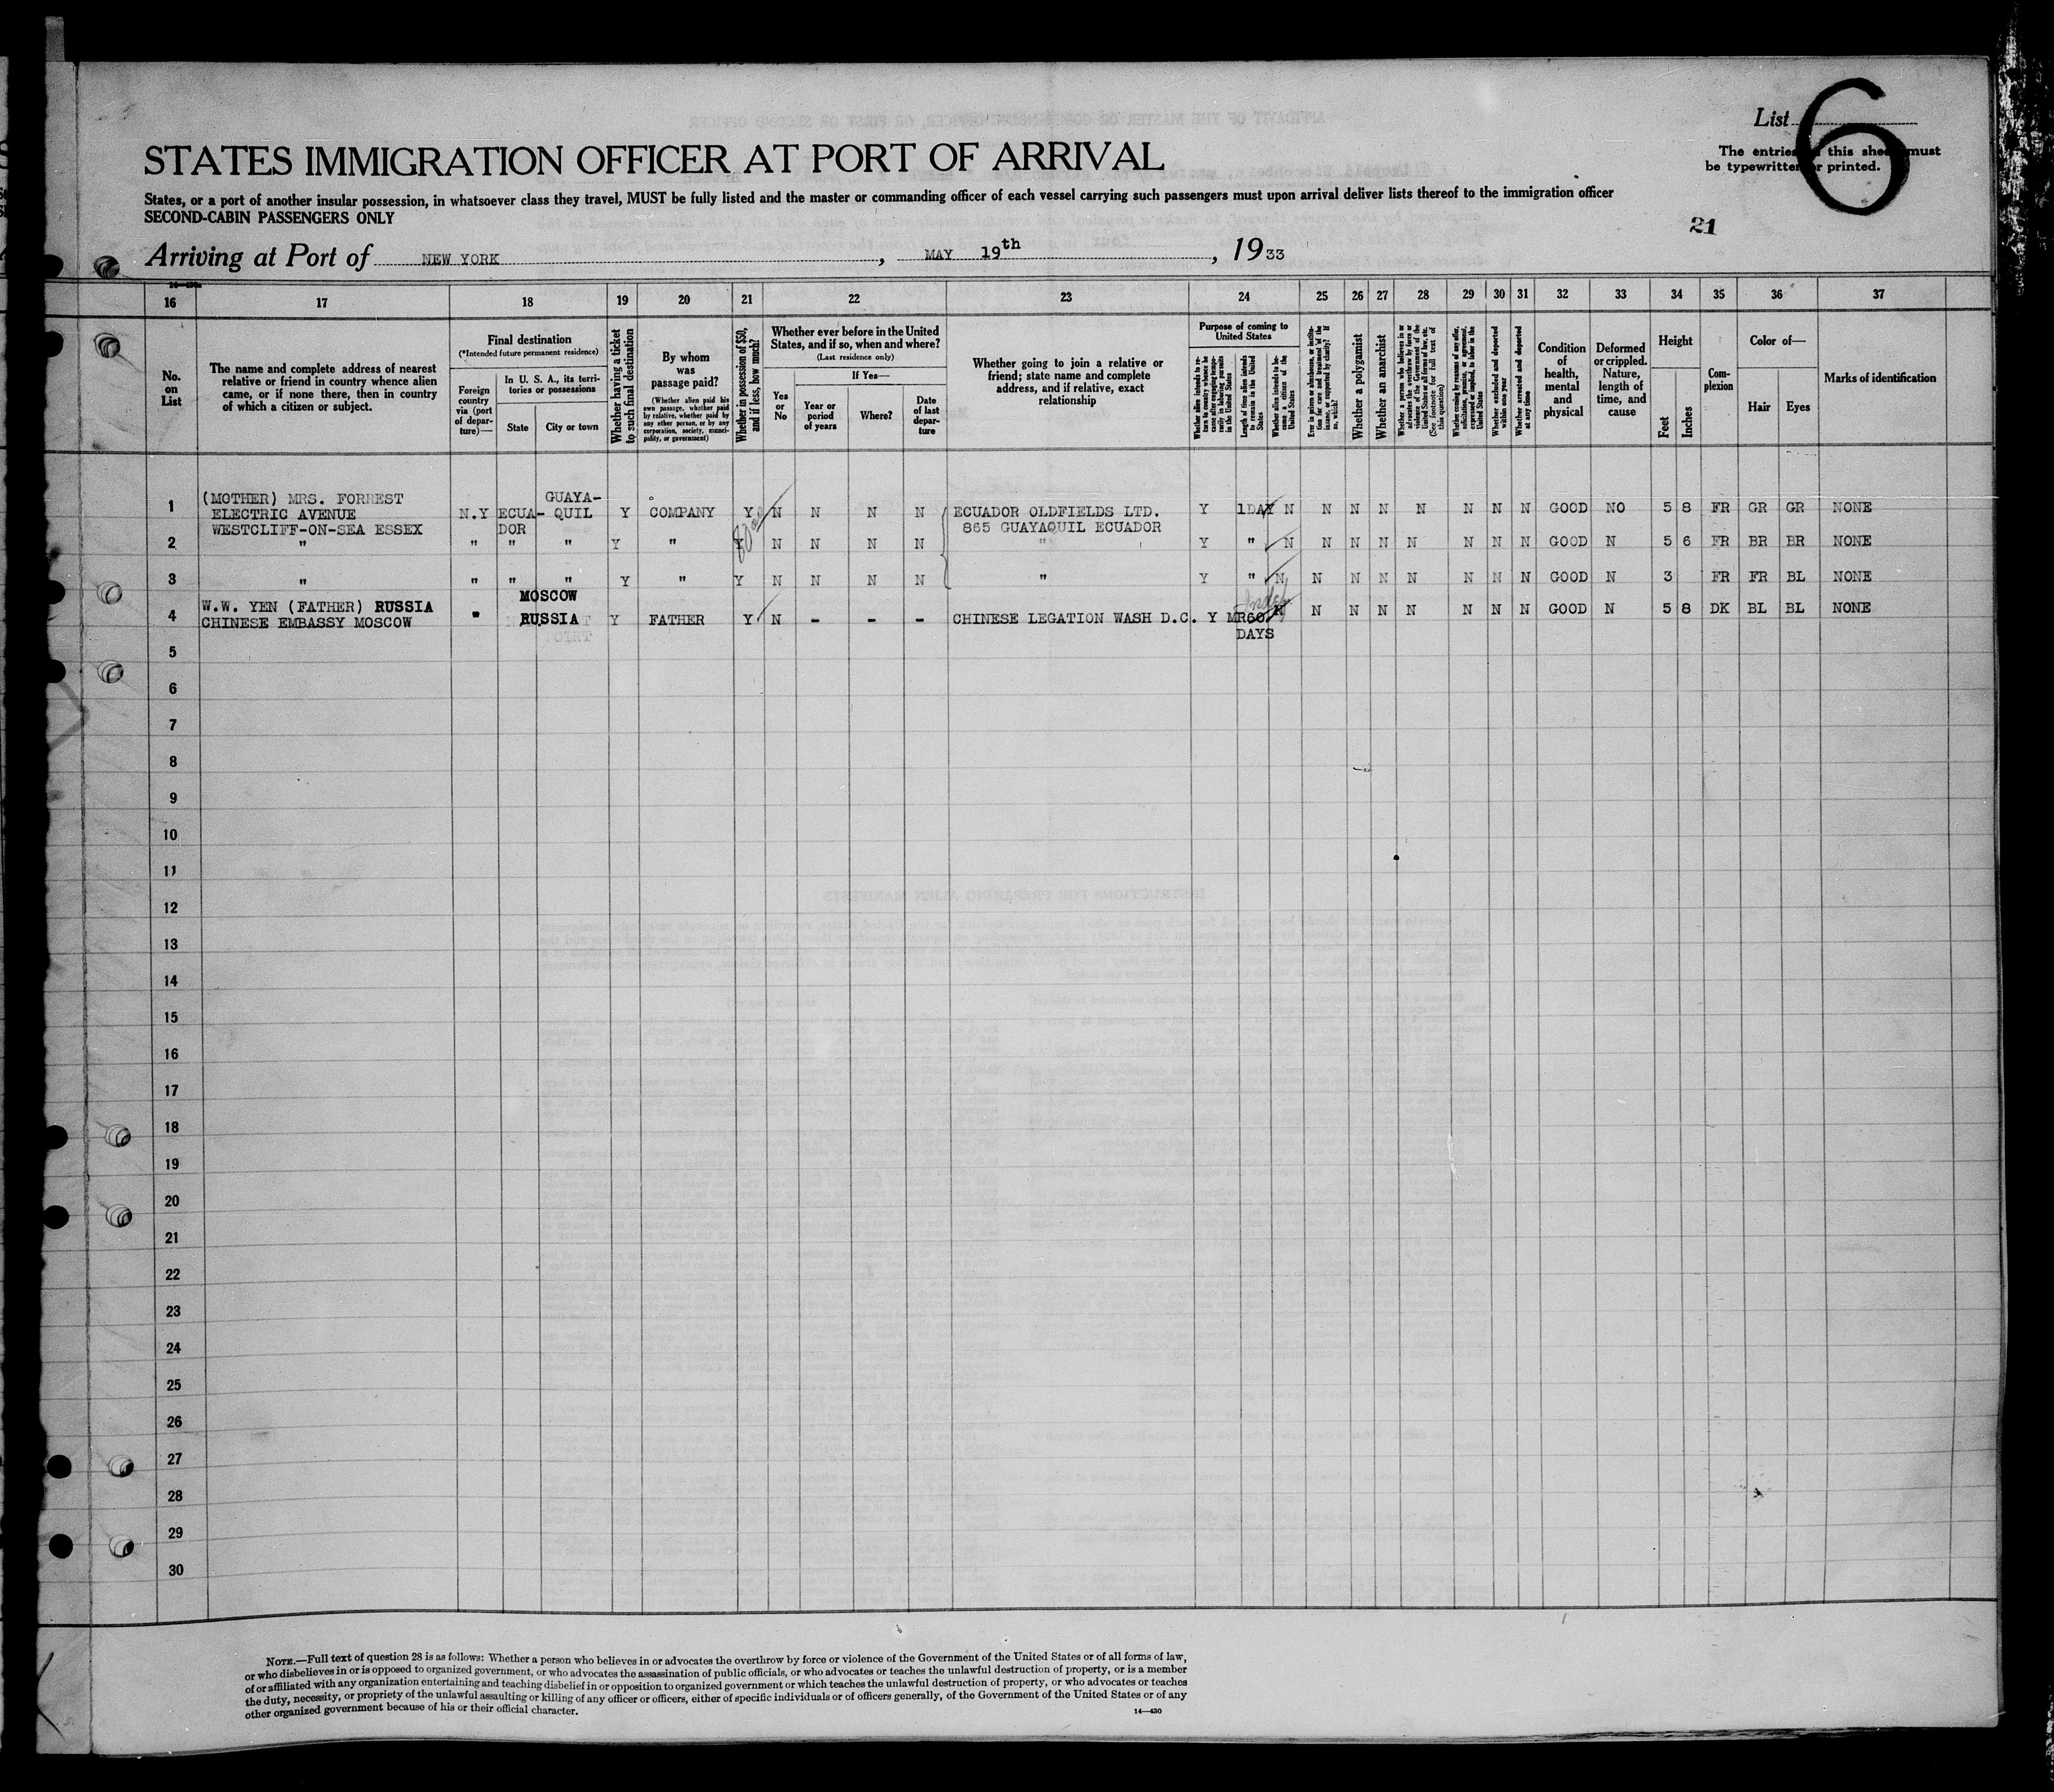 List 6
STATES IMMIGRATION OFFICER AT PORT OF ARRIVAL
The entries this sheet must
be typewritten or printed.
States, or a port of another insular possession, in whatsoever class they travel, MUST be fully listed and the master or commanding officer of each vessel carrying such passengers must upon arrival deliver lists thereof to the immigration officer
SECOND-CABIN PASSENGERS ONLY
21
Arriving at Port of NEW YORK , MAY 19th , 1933
16 17 18 19 20 21 22 23 24 25 26 27 28 29 30 31 32 33 34 35 36 37
No. on List
The name and complete address of nearest relative or friend in country whence alien came, or if none there, then in country of which a citizen or subject.
Final destination
(*Intended future permanent residence)
Foreign country via (port of departure)—
In U. S. A., its territories or possessions
State
City or town
Whether having a ticket to such final destination
By whom was passage paid?
(Whether alien paid his own passage, whether paid by relative, whether paid by any other person, or by any corporation, society, municipality, or government)
Whether in possession of $50, and if less, how much?
Whether ever before in the United States, and if so, when and where?
(Last residence only)
Yes or No
If Yes—
Year or period of years
Where?
Date of last departure
Whether going to join a relative or friend; state name and complete address, and if relative, exact relationship
Purpose of coming to United States
Whether alien intends to return to country whence he came after engaging temporarily in laboring pursuits in the United States
Length of time alien intends to remain in the United States
Whether alien intends to become a citizen of the United States
Ever in prison or almshouse, or institution for care and treatment of the insane, or supported by charity? If so, which?
Whether a polygamist
Whether an anarchist
Whether a person who believes in or advocates the overthrow by force or violence of the Government of the United States or all forms of law, etc. (See footnote for full text of this question)
Whether coming by reason of any offer, solicitation, promise, or agreement, expressed or implied, to labor in the United States
Whether excluded and deported within one year
Whether arrested and deported at any time
Condition of health, mental and physical
Deformed or crippled. Nature, length of time, and cause
Height
Feet
Inches
Complexion
Color of—
Hair
Eyes
Marks of identification
1 (MOTHER) MRS. FORREST
ELECTRIC AVENUE
WESTCLIFF-ON-SEA ESSEX
N.Y ECUADOR GUAYAQUIL Y COMPANY Y N N N N ECUADOR OLDFIELDS LTD.
865 GUAYAQUIL ECUADOR
Y 1DAY N N N N N N N N GOOD NO 5 8 FR GR GR NONE
2 " " " " Y " Y N N N N " Y " N N N N N N N N GOOD N 5 6 FR BR BR NONE
3 " " " " Y " Y N N N N " Y " N N N N N N N N GOOD N 3 FR FR BL NONE
4 W.W. YEN (FATHER) RUSSIA
CHINESE EMBASSY MOSCOW
" MOSCOW
RUSSIA Y FATHER Y N - - - CHINESE LEGATION WASH D.C. Y 60 DAYS N N N N N N N N GOOD N 5 8 DK BL BL NONE
5
6
7
8
9
10
11
12
13
14
15
16
17
18
19
20
21
22
23
24
25
26
27
28
29
30
NOTE.—Full text of question 28 is as follows: Whether a person who believes in or advocates the overthrow by force or violence of the Government of the United States or of all forms of law,
or who disbelieves in or is opposed to organized government, or who advocates the assassination of public officials, or who advocates or teaches the unlawful destruction of property, or is a member
of or affiliated with any organization entertaining and teaching disbelief in or opposition to organized government or which teaches the unlawful destruction of property, or who advocates or teaches
the duty, necessity, or propriety of the unlawful assaulting or killing of any officer or officers, either of specific individuals or of officers generally, of the Government of the United States or of any
other organized government because of his or their official character.
14—430